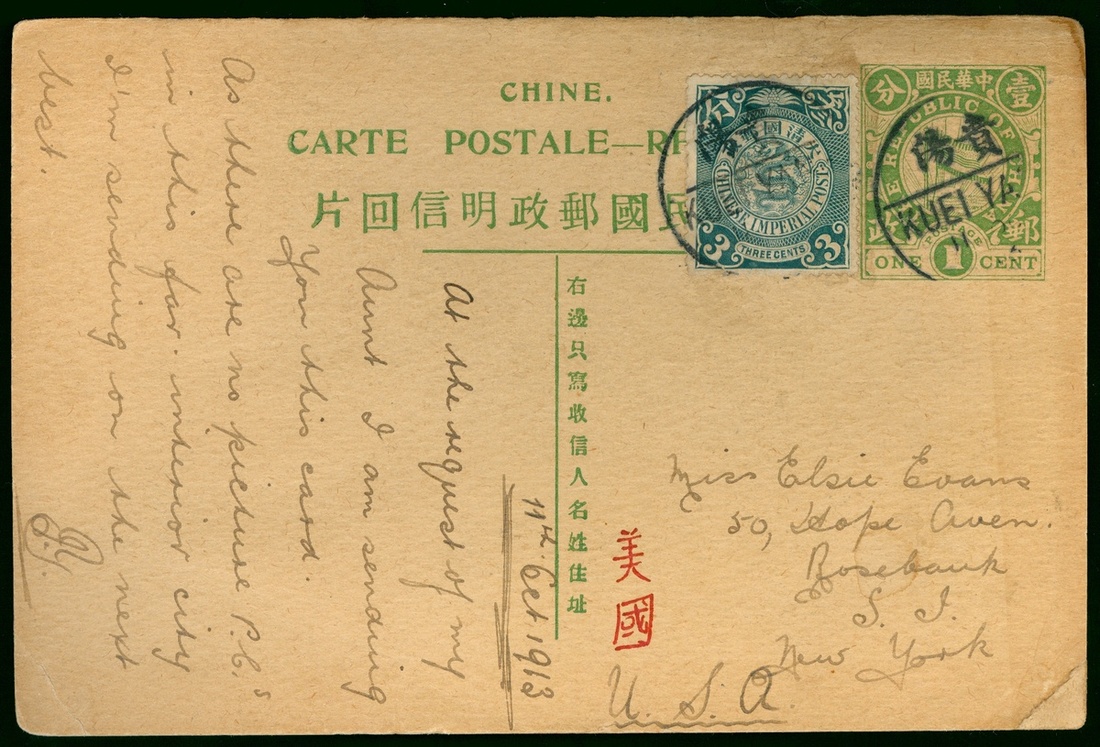 CHINE.
CARTE POSTALE—RE
片回信明政郵國民
分 國民華中 壹
REPUBLIC OF
政 郵
POSTAGE
ONE 1 CENT
分 叁
大清國郵政
CHINESE IMPERIAL POST
3 THREE CENTS 3
陽貴
KUEI YA
右邊只寫收信人名姓住址
11th. Oct 1913
At the request of my
Aunt I am sending
You this card.
As there are no picture P.C's
in this far interior city
I'm sending on the next
best.
Miss Elsie Evans
50, Hope Aven.
Rosebank
S. I.
New York
U. S. A.
美國